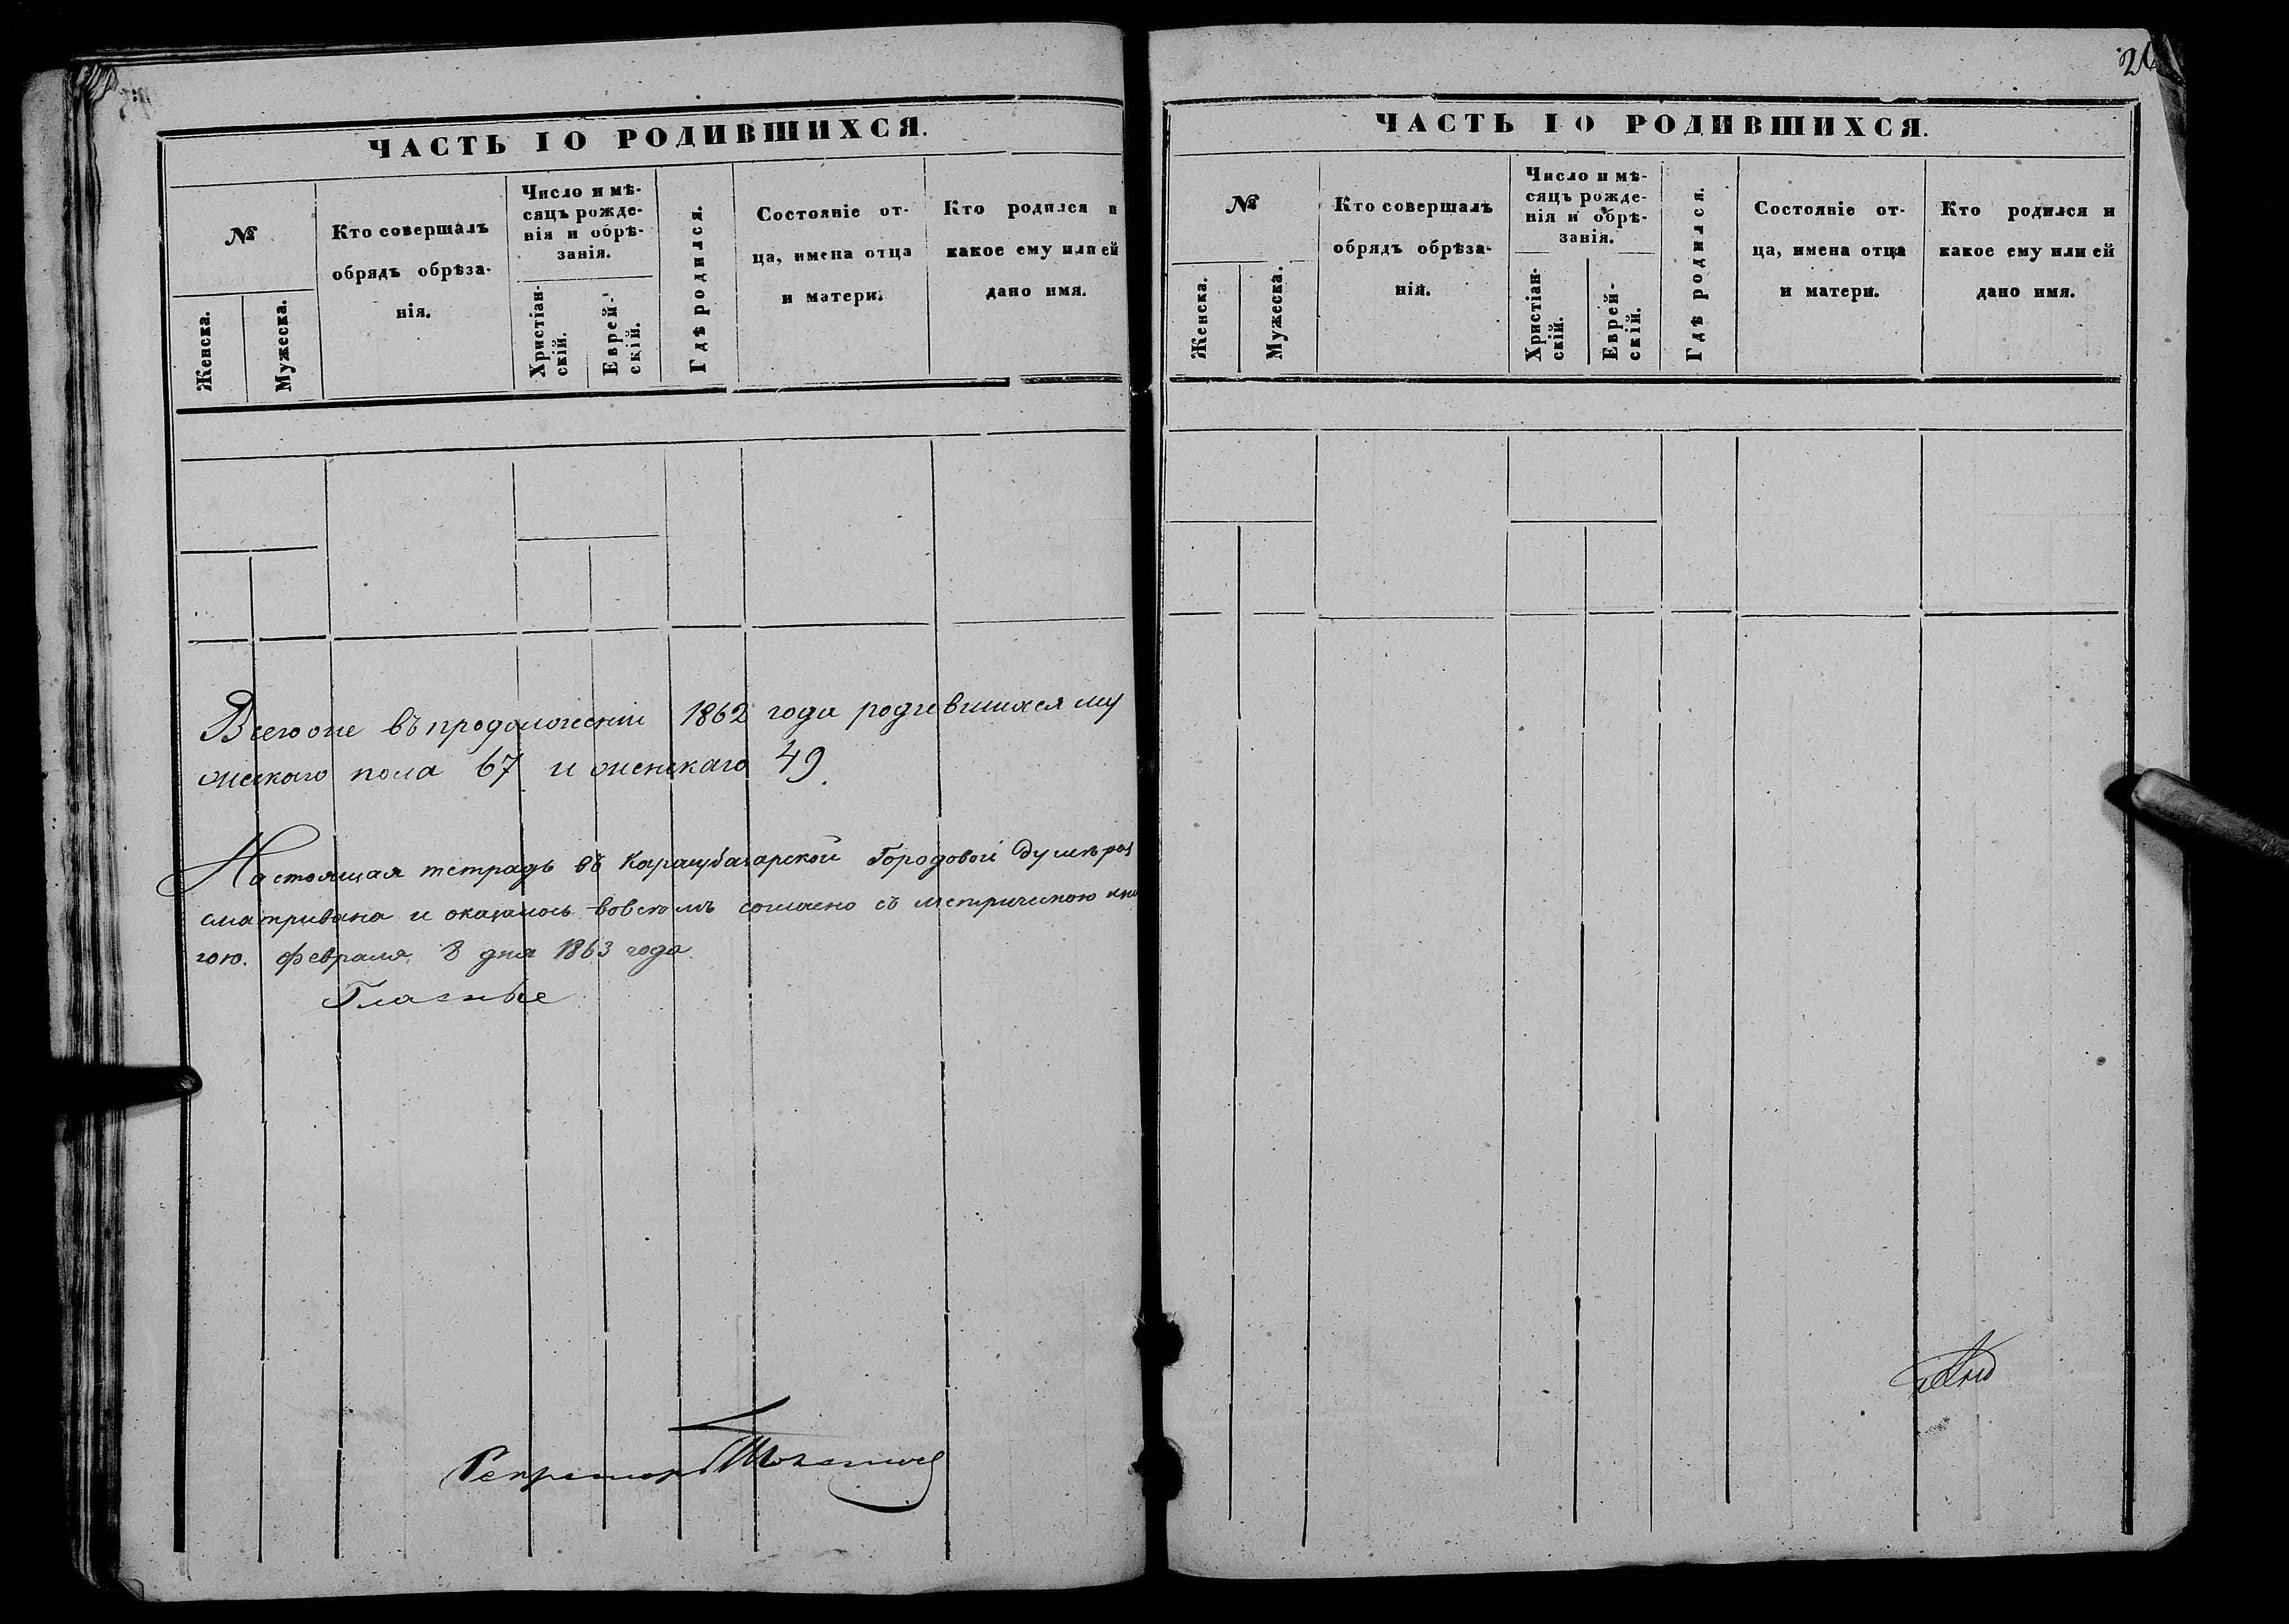 ЧАСТЬ I О РОДИВШИХСЯ.
№
Женска.
Мужеска.
Кто совершалъ
обрядъ обрѣза-
нія.
Число и мѣ-
сяцъ рожде-
нія и обрѣ-
занія.
Христіан-
скій.
Еврей-
скій.
Гдѣ родился.
Состояніе от-
ца, имена отца
и матери.
Кто родился и
какое ему или ей
дано имя.
Всего оже въ продолженіи 1862 года родившихся му
жескаго пола 67 и женскаго 49.
Настоящая тетрадь въ Карасубазарской Городовой Думѣ раз
сматривана и оказалось вовсемъ согласно съ метрическою кни
гою. февраля 8 дня 1863 года.
Гласные
Секретарь
ЧАСТЬ I О РОДИВШИХСЯ.
№
Женска.
Мужеска.
Кто совершалъ
обрядъ обрѣза-
нія.
Число и мѣ-
сяцъ рожде-
нія и обрѣ-
занія.
Христіан-
скій.
Еврей-
скій.
Гдѣ родился.
Состояніе от-
ца, имена отца
и матери.
Кто родился и
какое ему или ей
дано имя.